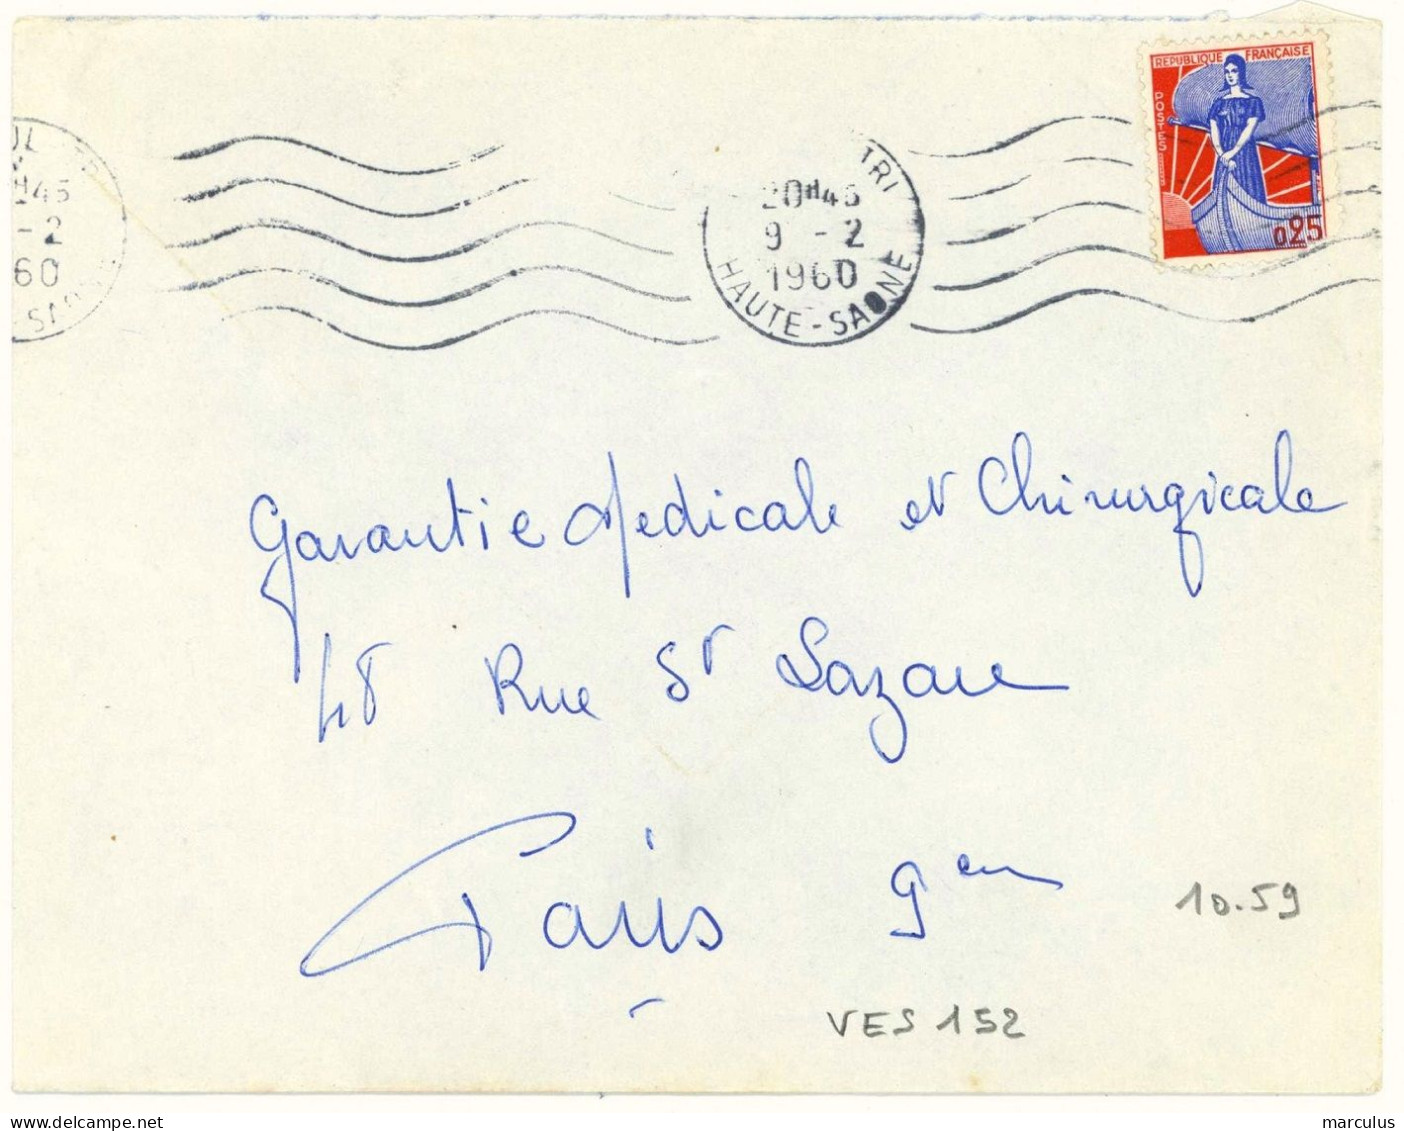 RÉPUBLIQUE FRANÇAISE
POSTES
0,25
TRI
20H45
9 - 2
1960
HAUTE-SAONE
H45
- 2
60
Garantie Medicale et Chirurgicale
48 Rue St Lazare
Paris 9em
10.59
VES 152
delcampe.net
marculus